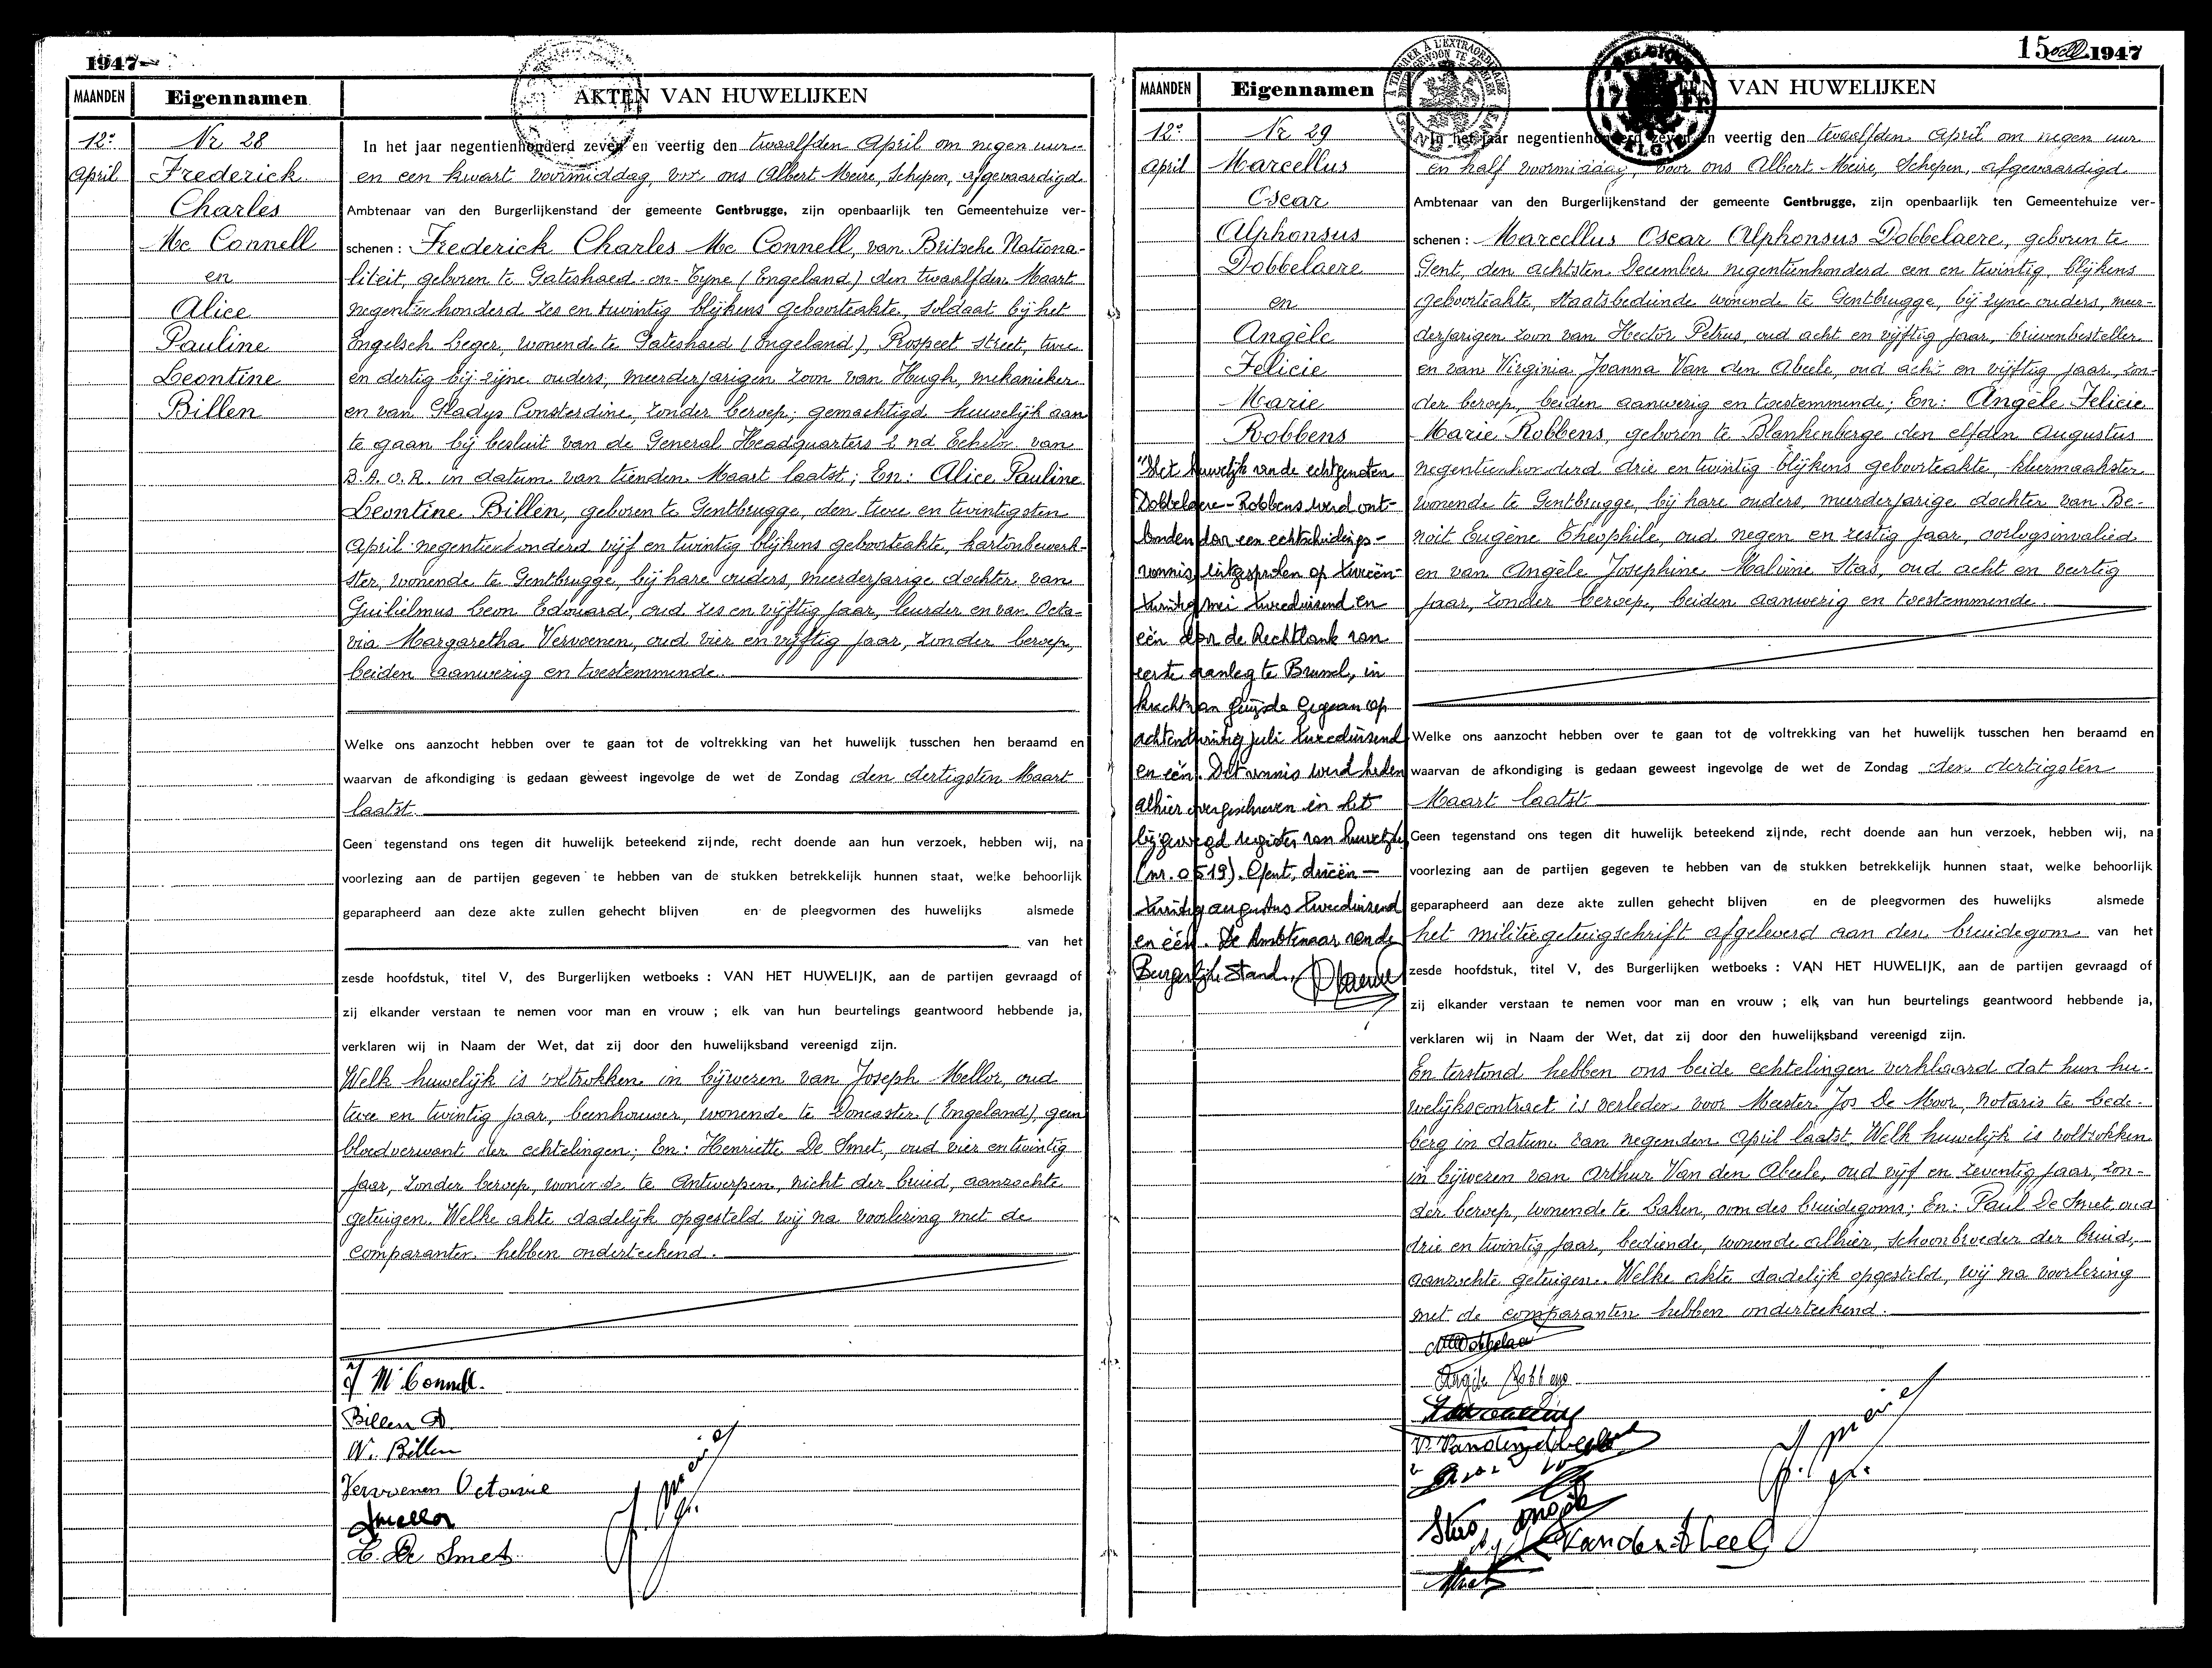 1947
MAANDEN
Eigennamen
AKTEN VAN HUWELIJKEN
12e
April
Nr 28
Frederick
Charles
Mc Connell
en
Alice
Pauline
Leontine
Billen
In het jaar negentienhonderd zeven en veertig den twaalfden April om negen uur
en een kwart voormiddag, voor ons Albert Meire, Schepen, afgevaardigd
Ambtenaar van den Burgerlijkenstand der gemeente Gentbrugge, zijn openbaarlijk ten Gemeentehuize ver-
schenen : Frederick Charles Mc Connell, van Britsche Nationa-
liteit, geboren te Gateshaed-on-Tyne (Engeland) den twaalfden Maart
negentienhonderd zes en twintig blijkens geboorteakte, soldaat bij het
Engelsch leger, wonende te Gateshaed (Engeland), Rospeet street, twee
en dertig bij zijne ouders, meerderjarigen zoon van Hugh, mekanieker
en van Gladys Consterdine, zonder beroep; gemachtigd huwelijk aan
te gaan bij besluit van de General Headquarters 2 nd Echilor van
B.A.O.R. in datum van tienden Maart laatst; En: Alice Pauline
Leontine Billen, geboren te Gentbrugge, den twee en twintigsten
April negentienhonderd vijf en twintig blijkens geboorteakte, kartonbewerk-
ster, wonende te Gentbrugge, bij hare ouders, meerderjarige dochter van
Guilielmus Leon Edouard, oud zes en vijftig jaar, leurder en van Octa-
via Margaretha Vervoenen, oud vier en vijftig jaar, zonder beroep,
beiden aanwezig en toestemmende.
Welke ons aanzocht hebben over te gaan tot de voltrekking van het huwelijk tusschen hen beraamd en
waarvan de afkondiging is gedaan geweest ingevolge de wet de Zondag den dertigsten Maart
laatst.
Geen tegenstand ons tegen dit huwelijk beteekend zijnde, recht doende aan hun verzoek, hebben wij, na
voorlezing aan de partijen gegeven te hebben van de stukken betrekkelijk hunnen staat, welke behoorlijk
geparapheerd aan deze akte zullen gehecht blijven en de pleegvormen des huwelijks alsmede
van het
zesde hoofdstuk, titel V, des Burgerlijken wetboeks : VAN HET HUWELIJK, aan de partijen gevraagd of
zij elkander verstaan te nemen voor man en vrouw ; elk van hun beurtelings geantwoord hebbende ja,
verklaren wij in Naam der Wet, dat zij door den huwelijksband vereenigd zijn.
Welk huwelijk is voltrokken in bijwezen van Joseph Mellor, oud
twee en twintig jaar, beenhouwer, wonende te Doncaster (Engeland), geen
bloedverwant der echtelingen; En: Henriette De Smet, oud vier en twintig
jaar, zonder beroep, wonende te Antwerpen, nicht der bruid, aanzochte
getuigen. Welke akte dadelijk opgesteld wij na voorlezing met de
comparanten hebben onderteekend.
Mc Connell.
Billen A
W. Billen
Vervoenen Octavie
J Mellor
H. De Smet
15 1947
MAANDEN
Eigennamen
VAN HUWELIJKEN
12e
April
Nr 29
Marcellus
Oscar
Alphonsus
Dobbelaere
en
Angèle
Felicie
Marie
Robbens
"Het huwelijk van de echtgenoten
Dobbelaere-Robbens werd ont-
bonden door een echtscheidings-
vonnis, uitgesproken op tweeën-
twintig mei tweeduizend en
één door de Rechtbank van
eerste aanleg te Brussel, in
kracht van gewijsde gegaan op
achtentwintig juli tweeduizend
en één. Dit vonnis werd heden
alhier overgeschreven in het
bijgevoegd register van huwelijken
(nr. 0519). Gent, drieën-
twintig augustus tweeduizend
en één. De Ambtenaar van de
Burgerlijke Stand,
In het jaar negentienhonderd zeven en veertig den twaalfden April om negen uur
en half voormiddag, voor ons Albert Meire, Schepen, afgevaardigd
Ambtenaar van den Burgerlijkenstand der gemeente Gentbrugge, zijn openbaarlijk ten Gemeentehuize ver-
schenen : Marcellus Oscar Alphonsus Dobbelaere, geboren te
Gent, den achtsten December negentienhonderd een en twintig, blijkens
geboorteakte, staatsbediende wonende te Gentbrugge, bij zijne ouders, meer-
derjarigen zoon van Hector Petrus, oud acht en vijftig jaar, brievenbesteller
en van Virginia Joanna Van den Abeele, oud acht en vijftig jaar, zon-
der beroep, beiden aanwezig en toestemmende; En: Angèle Felicie
Marie Robbens, geboren te Blankenberge den elfden Augustus
negentienhonderd drie en twintig blijkens geboorteakte, kleermaakster
wonende te Gentbrugge, bij hare ouders, meerderjarige dochter van Be-
noit Eugène Theophile, oud negen en zestig jaar, oorlogsinvalied
en van Angèle Josephine Malvine Stas, oud acht en veertig
jaar, zonder beroep, beiden aanwezig en toestemmende.
Welke ons aanzocht hebben over te gaan tot de voltrekking van het huwelijk tusschen hen beraamd en
waarvan de afkondiging is gedaan geweest ingevolge de wet de Zondag den dertigsten
Maart laatst
Geen tegenstand ons tegen dit huwelijk beteekend zijnde, recht doende aan hun verzoek, hebben wij, na
voorlezing aan de partijen gegeven te hebben van de stukken betrekkelijk hunnen staat, welke behoorlijk
geparapheerd aan deze akte zullen gehecht blijven en de pleegvormen des huwelijks alsmede
het militiegetuigschrift afgeleverd aan den bruidegom van het
zesde hoofdstuk, titel V, des Burgerlijken wetboeks : VAN HET HUWELIJK, aan de partijen gevraagd of
zij elkander verstaan te nemen voor man en vrouw ; elk van hun beurtelings geantwoord hebbende ja,
verklaren wij in Naam der Wet, dat zij door den huwelijksband vereenigd zijn.
En terstond hebben ons beide echtelingen verklaard dat hun hu-
welijkscontract is verleden voor Meester Jos De Moor, notaris te Lede-
berg in datum van negenden April laatst. Welk huwelijk is voltrokken
in bijwezen van Arthur Van den Abeele, oud vijf en zeventig jaar, zon-
der beroep, wonende te Laken, oom des bruidegoms; En: Paul De Smet, oud
drie en twintig jaar, bediende, wonende alhier, schoonbroeder der bruid,
aanzochte getuigen. Welke akte dadelijk opgesteld, wij na voorlezing
met de comparanten hebben onderteekend.
Dobbelaere
Angèle Robbens
V. Vandenabeele
Stas Angèle
Vanden Abeele